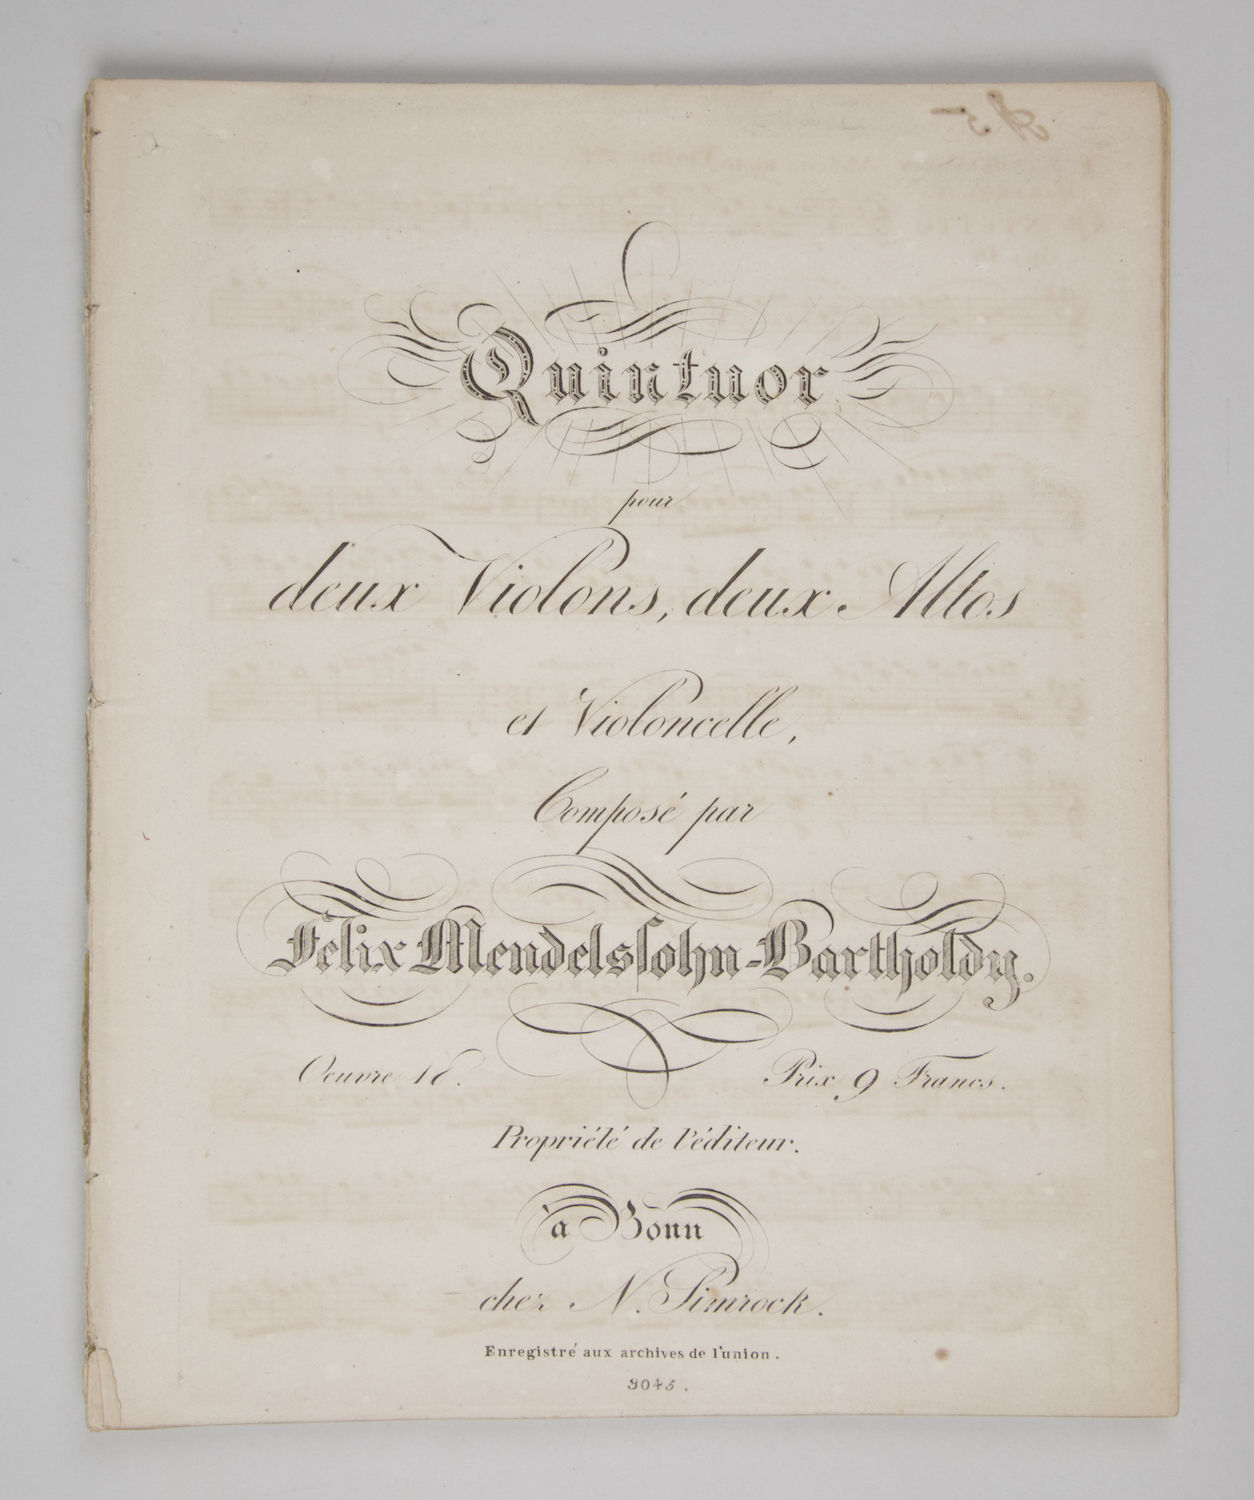 Quintuor
pour
deux Violons, deux Altos
et Violoncelle,
Composé par
Felix Mendelsſohn-Bartholdy.
Oeuvre 18. Prix 9 Francs.
Propriété de l'éditeur.
à Bonn
chez N. Simrock.
Enregistré aux archives de l'union.
3045.